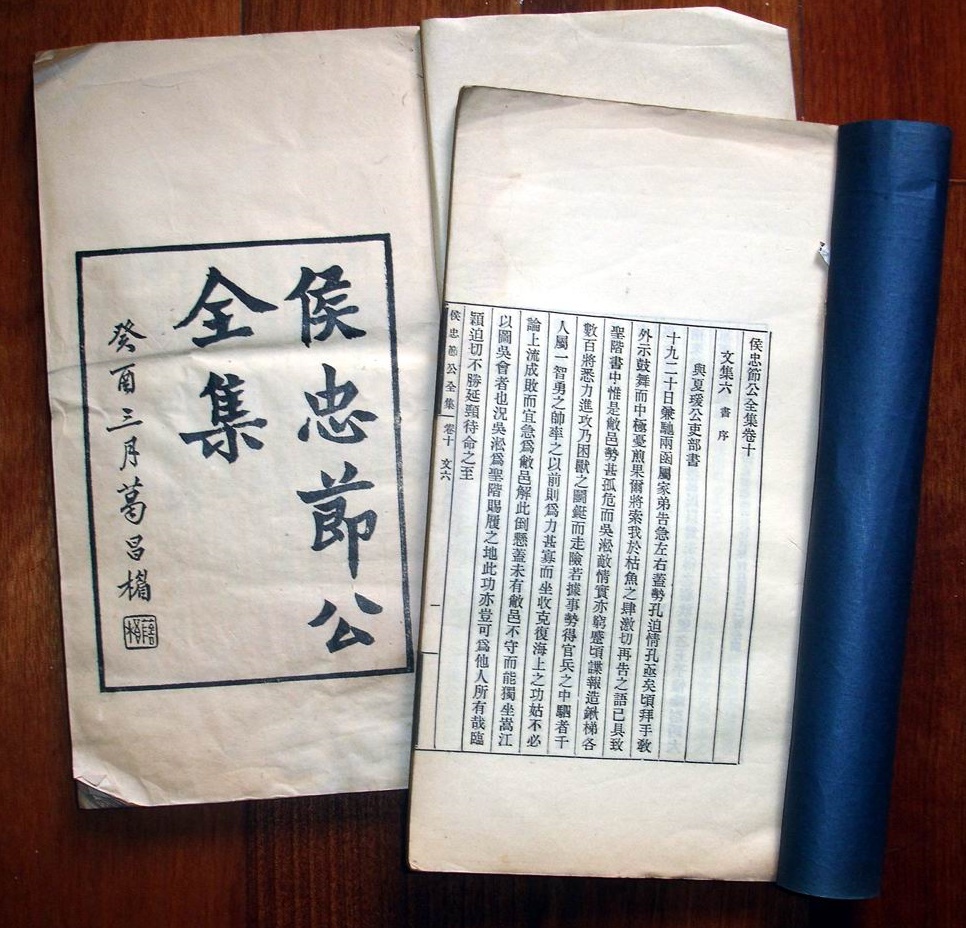 侯忠節公
全集
癸酉三月葛昌楣
侯忠節公全集卷十
文集六 書 序
與夏瑗公吏部書
十九二十日兼馳兩函屬家弟告急左右蓋勢孔迫情孔亟矣頃拜手敎
外示鼓舞而中極憂煎果爾將索我於枯魚之肆激切再告之語已具致
聖階書中惟是敝邑勢甚孤危而吳淞敵情實亦窮蹙頃諜報造鍬梯各
數百將悉力進攻乃困獸之鬭鋌而走險若據事勢得官兵之中駟者千
人屬一智勇之帥率之以前則爲力甚寡而坐收克復海上之功姑不必
論上流成敗而宜急爲敝邑解此倒懸蓋未有敝邑不守而能獨坐嵩江
以圖吳會者也況吳淞爲聖階賜履之地此功亦豈可爲他人所有哉臨
穎迫切不勝延頸待命之至
侯忠節公全集 卷十 文六 一